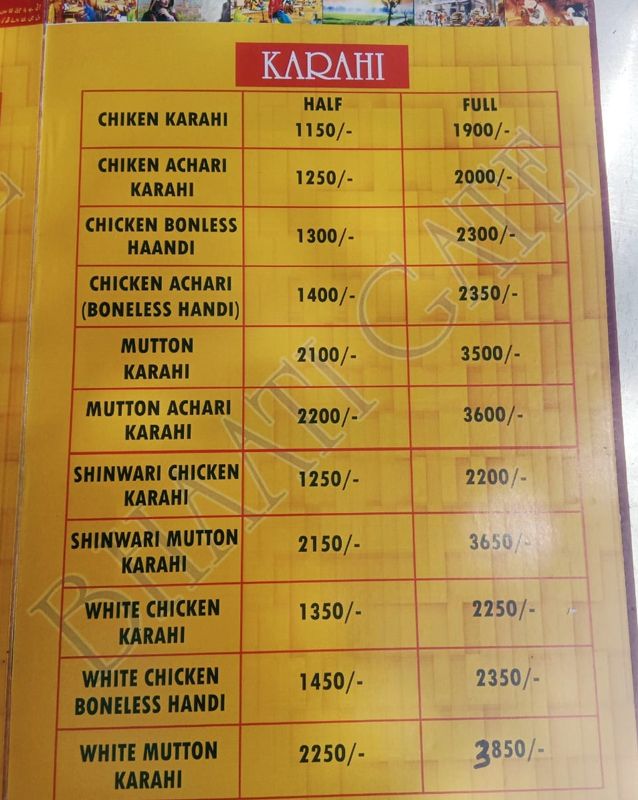 KARAHI
HALF FULL
CHIKEN KARAHI 1150/- 1900/-
CHIKEN ACHARI
KARAHI 1250/- 2000/-
CHICKEN BONLESS
HAANDI 1300/- 2300/-
CHICKEN ACHARI
(BONELESS HANDI) 1400/- 2350/-
MUTTON
KARAHI 2100/- 3500/-
MUTTON ACHARI
KARAHI 2200/- 3600/-
SHINWARI CHICKEN
KARAHI 1250/- 2200/-
SHINWARI MUTTON
KARAHI 2150/- 3650/-
WHITE CHICKEN
KARAHI 1350/- 2250/-
WHITE CHICKEN
BONELESS HANDI 1450/- 2350/-
WHITE MUTTON
KARAHI 2250/- 3850/-
BHAATI GATE